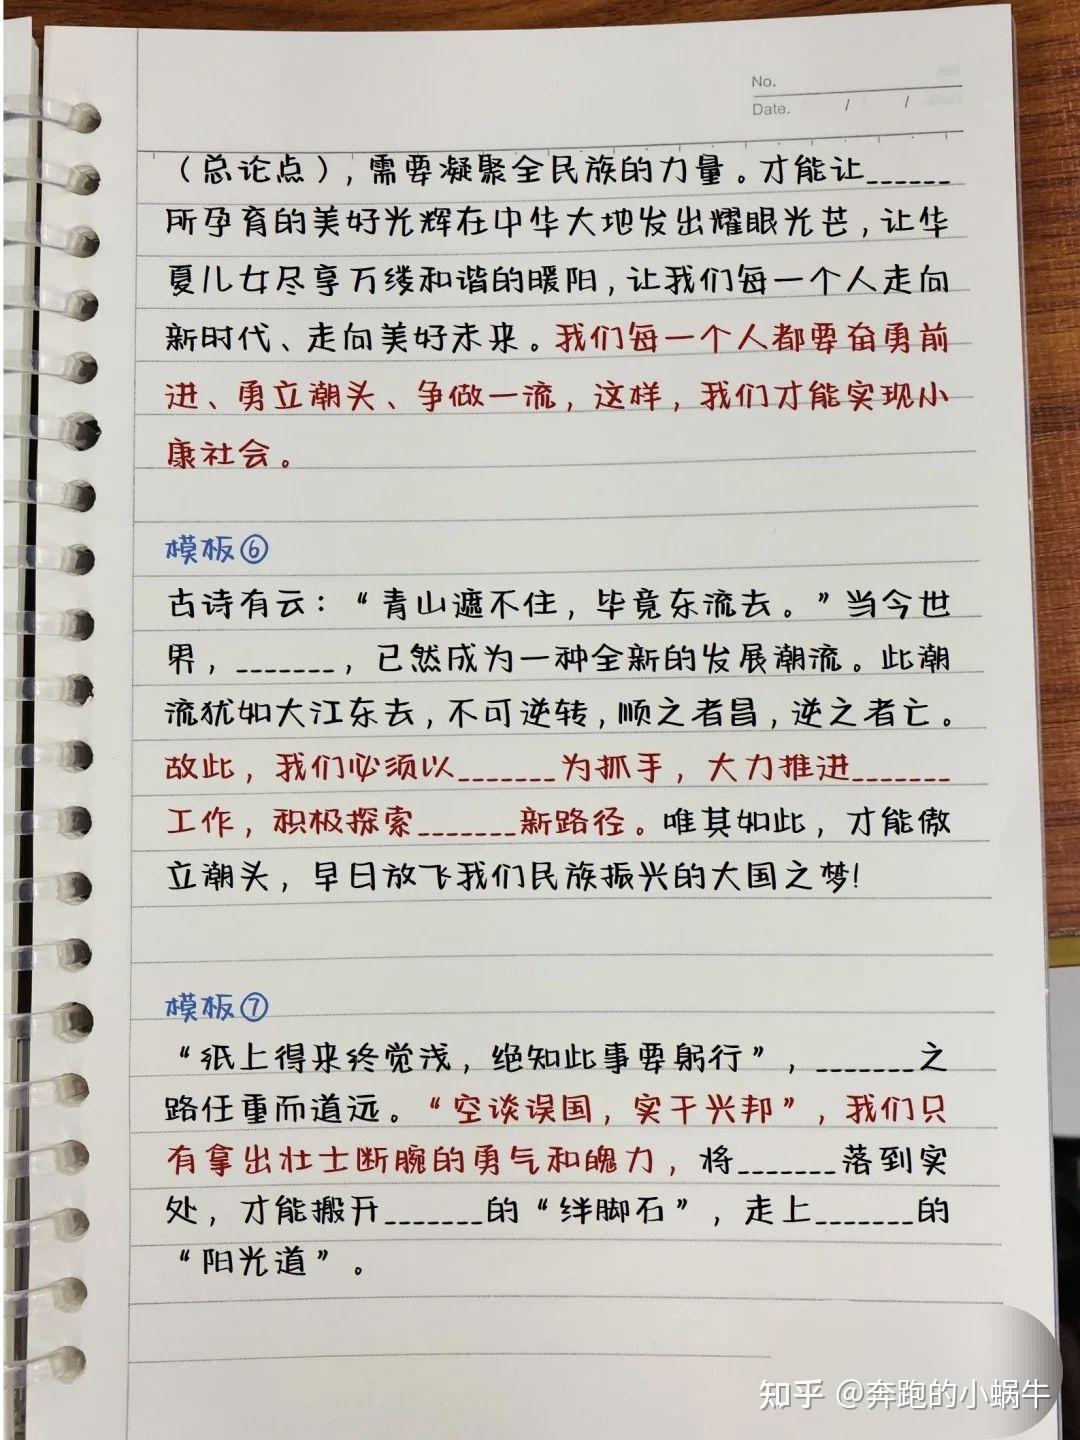 No.
Date. / /
（总论点），需要凝聚全民族的力量。才能让______
所孕育的美好光辉在中华大地发出耀眼光芒，让华
夏儿女尽享万缕和谐的暖阳，让我们每一个人走向
新时代、走向美好未来。我们每一个人都要奋勇前
进、勇立潮头、争做一流，这样，我们才能实现小
康社会。
模板⑥
古诗有云：“青山遮不住，毕竟东流去。”当今世
界，_______，已然成为一种全新的发展潮流。此潮
流犹如大江东去，不可逆转，顺之者昌，逆之者亡。
故此，我们必须以_______为抓手，大力推进_______
工作，积极探索_______新路径。唯其如此，才能傲
立潮头，早日放飞我们民族振兴的大国之梦！
模板⑦
“纸上得来终觉浅，绝知此事要躬行”，_______之
路任重而道远。“空谈误国，实干兴邦”，我们只
有拿出壮士断腕的勇气和魄力，将_______落到实
处，才能搬开_______的“绊脚石”，走上_______的
“阳光道”。
知乎 @奔跑的小蜗牛